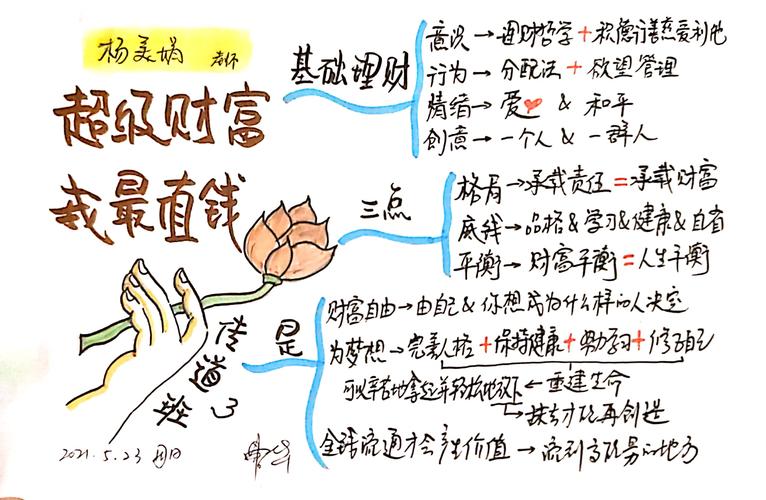 杨美娟 老师
超级财富
我最直钱
传道班3
2021.5.23 周日
基础理财
意识→理财哲学+积德行善慈爱利他
行为→分配法+欲望管理
情绪→爱❤ & 和平
创意→一个人 & 一群人
三点
格局→承载责任=承载财富
底线→品格&学习&健康&自省
平衡→财富平衡=人生平衡
是
财富自由→由自己 & 你想成为什么样的人决定
为梦想→完美人格+保持健康+勤学习+修自己
←重建生命
→ 再创造
全球流通才会产生价值→流到高 的地方